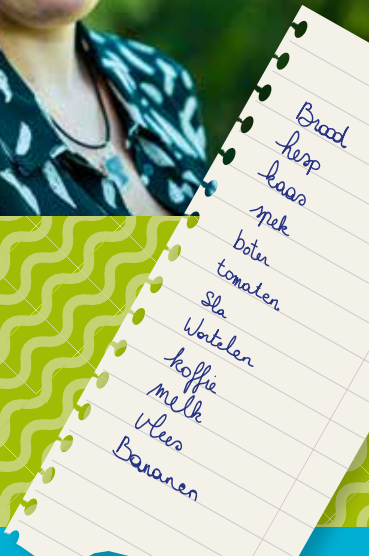 Brood
hesp
kaas
spek
boter
tomaten
Sla
Wortelen
koffie
melk
vlees
Bananen